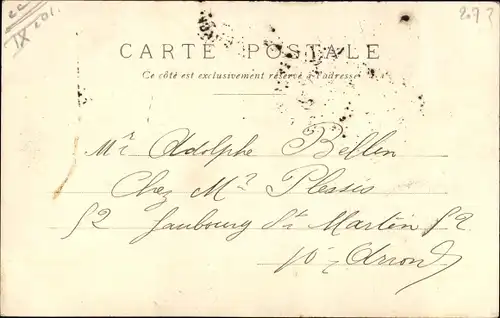 207
CARTE POSTALE
Ce côté est exclusivement réservé à l'adresse
Mr Adolphe Bellen
Chez Mr Plessis
52 faubourg St Martin 52
10e Arrond